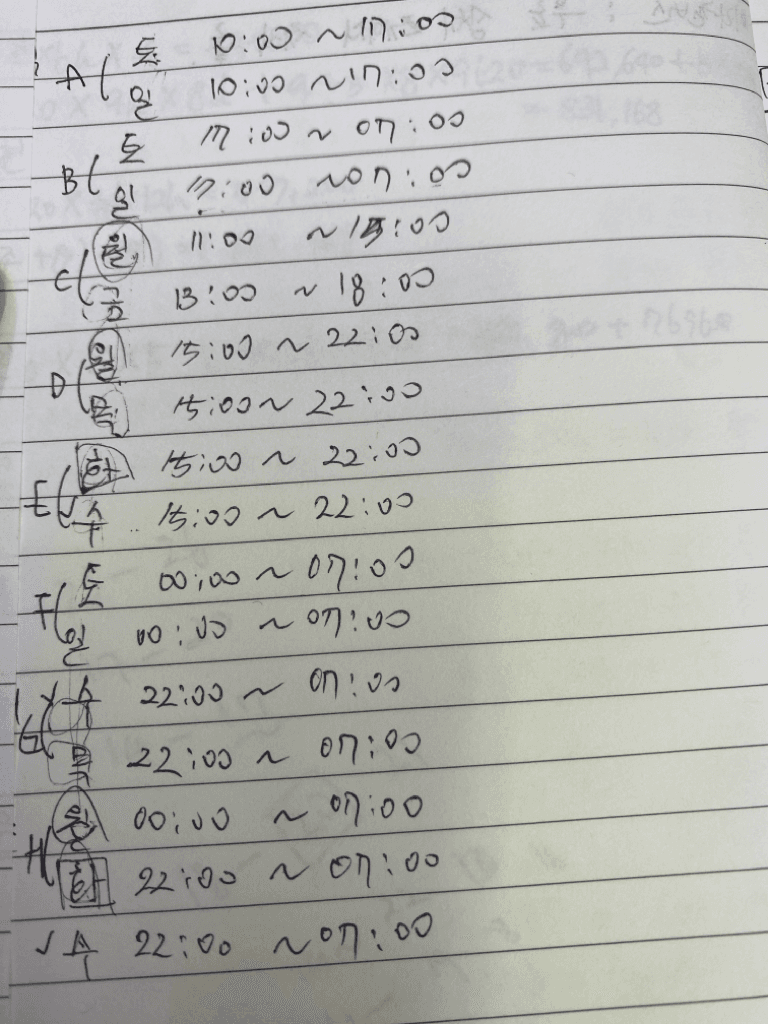 A ( 토 10:00 ~ 17:00
일 10:00 ~ 17:00
B ( 토 17:00 ~ 07:00
일 17:00 ~ 07:00
C ( 월 11:00 ~ 15:00
금 13:00 ~ 18:00
D ( 월 15:00 ~ 22:00
목 15:00 ~ 22:00
E ( 화 15:00 ~ 22:00
√ 수 15:00 ~ 22:00
F ( 토 00:00 ~ 07:00
일 00:00 ~ 07:00
G ( √ 수 22:00 ~ 07:00
목 22:00 ~ 07:00
H ( 월 00:00 ~ 07:00
화 22:00 ~ 07:00
√ 수 22:00 ~ 07:00